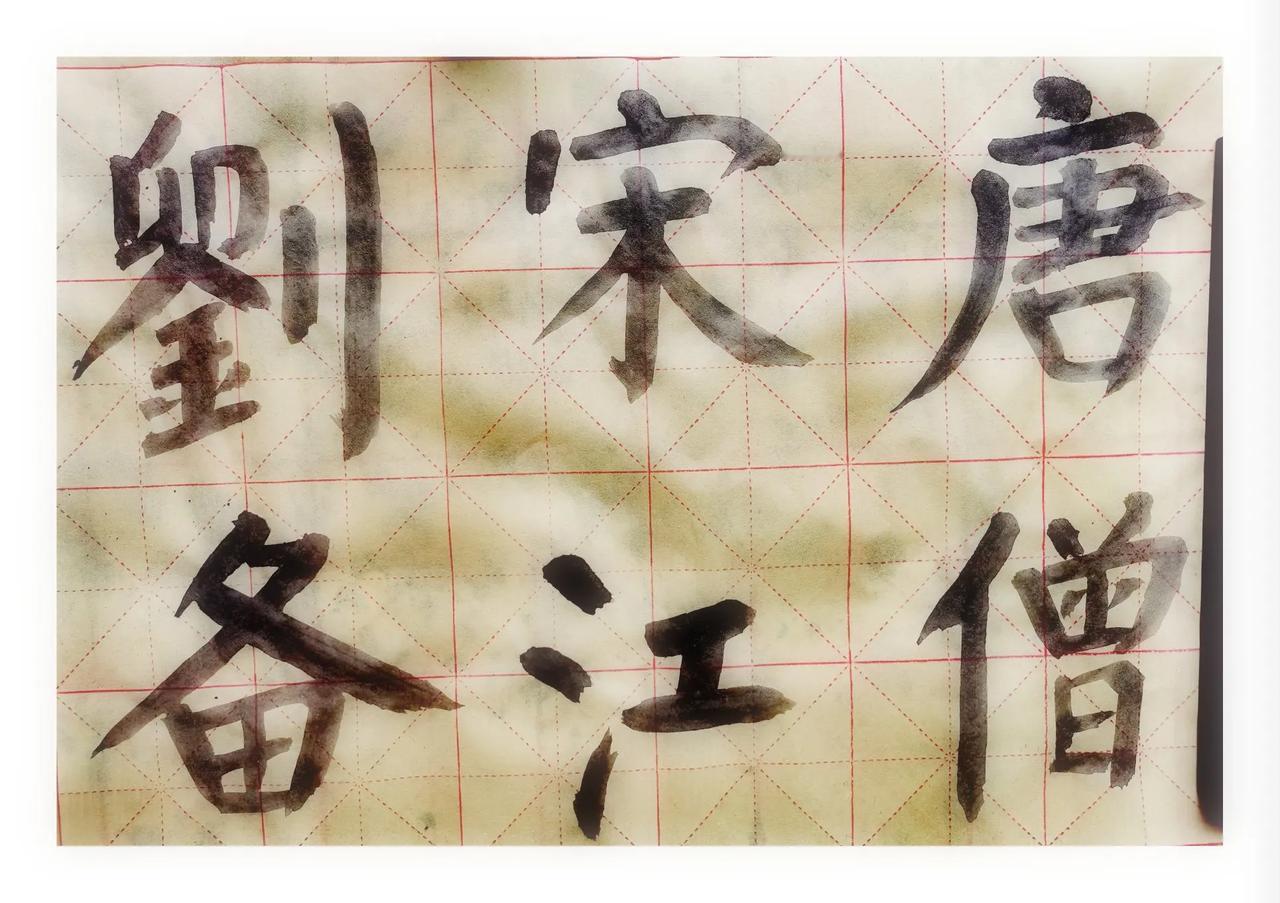 唐僧
宋江
劉备